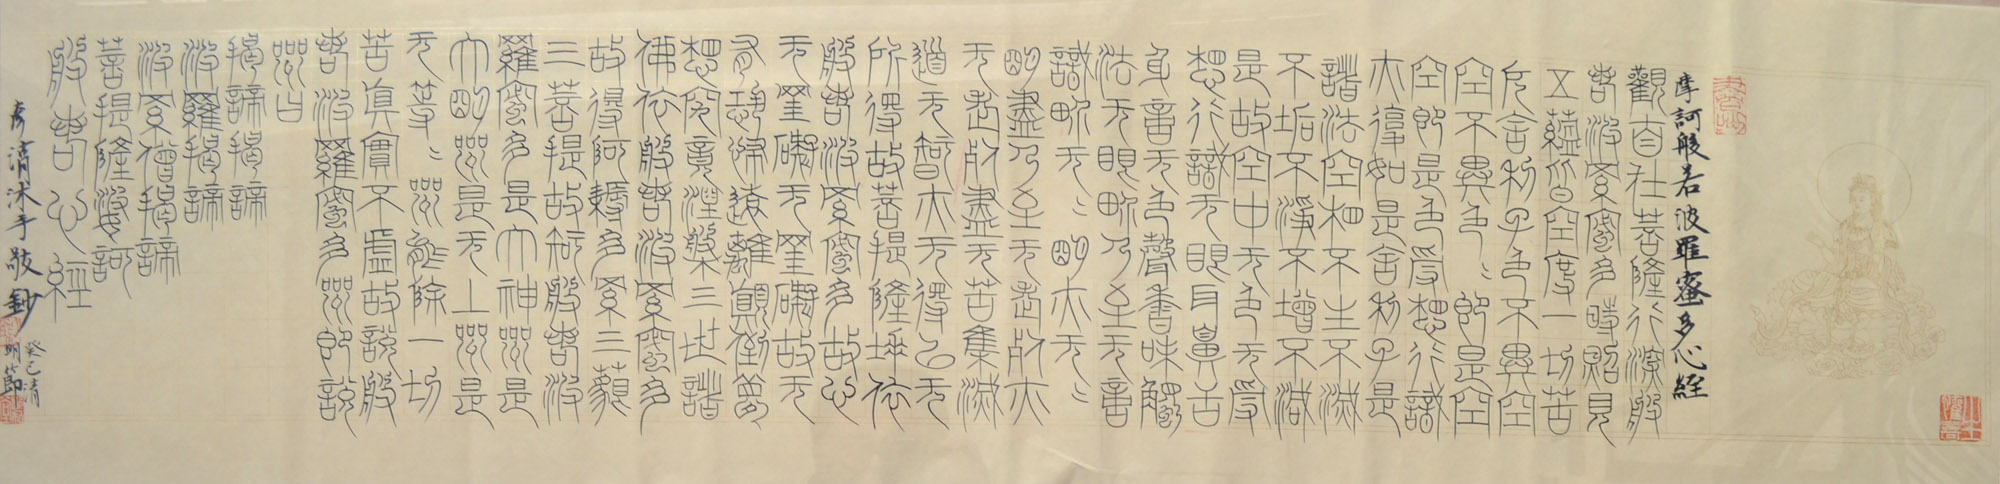 摩訶般若波羅蜜多心經
觀自在菩薩行深般
若波羅蜜多時照見
五蘊皆空度一切苦
厄舍利子色不異空
空不異色色即是空
空即是色受想行識
亦復如是舍利子是
諸法空相不生不滅
不垢不淨不增不減
是故空中无色无受
想行識无眼耳鼻舌
身意无色聲香味觸
法无眼界乃至无意
識界无无明亦无无
明盡乃至无老死亦
无老死盡无苦集滅
道无智亦无得以无
所得故菩提薩埵依
般若波羅蜜多故心
无罣礙无罣礙故无
有恐怖遠離顛倒夢
想究竟涅槃三世諸
佛依般若波羅蜜多
故得阿耨多羅三藐
三菩提故知般若波
羅蜜多是大神咒是
大明咒是无上咒是
无等等咒能除一切
苦真實不虛故說般
若波羅蜜多咒即說
咒曰
揭諦揭諦
波羅揭諦
波羅僧揭諦
菩提薩婆訶
般若心經
清沐手敬鈔
癸巳清
明節